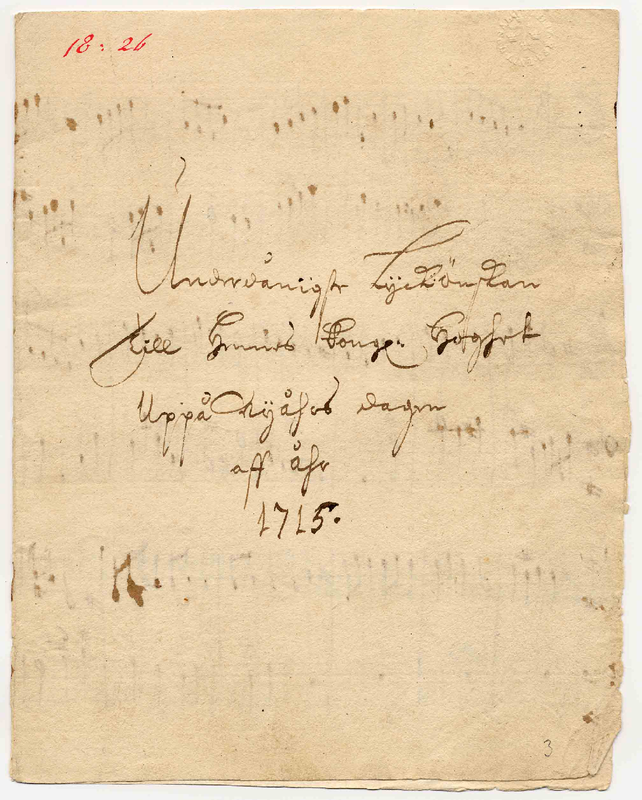 18: 26
Underdånigste Lyckönskan
till Hennes Kongl: Höghet
Uppå Nyåhrs dagen
aff åhr
1715.
3